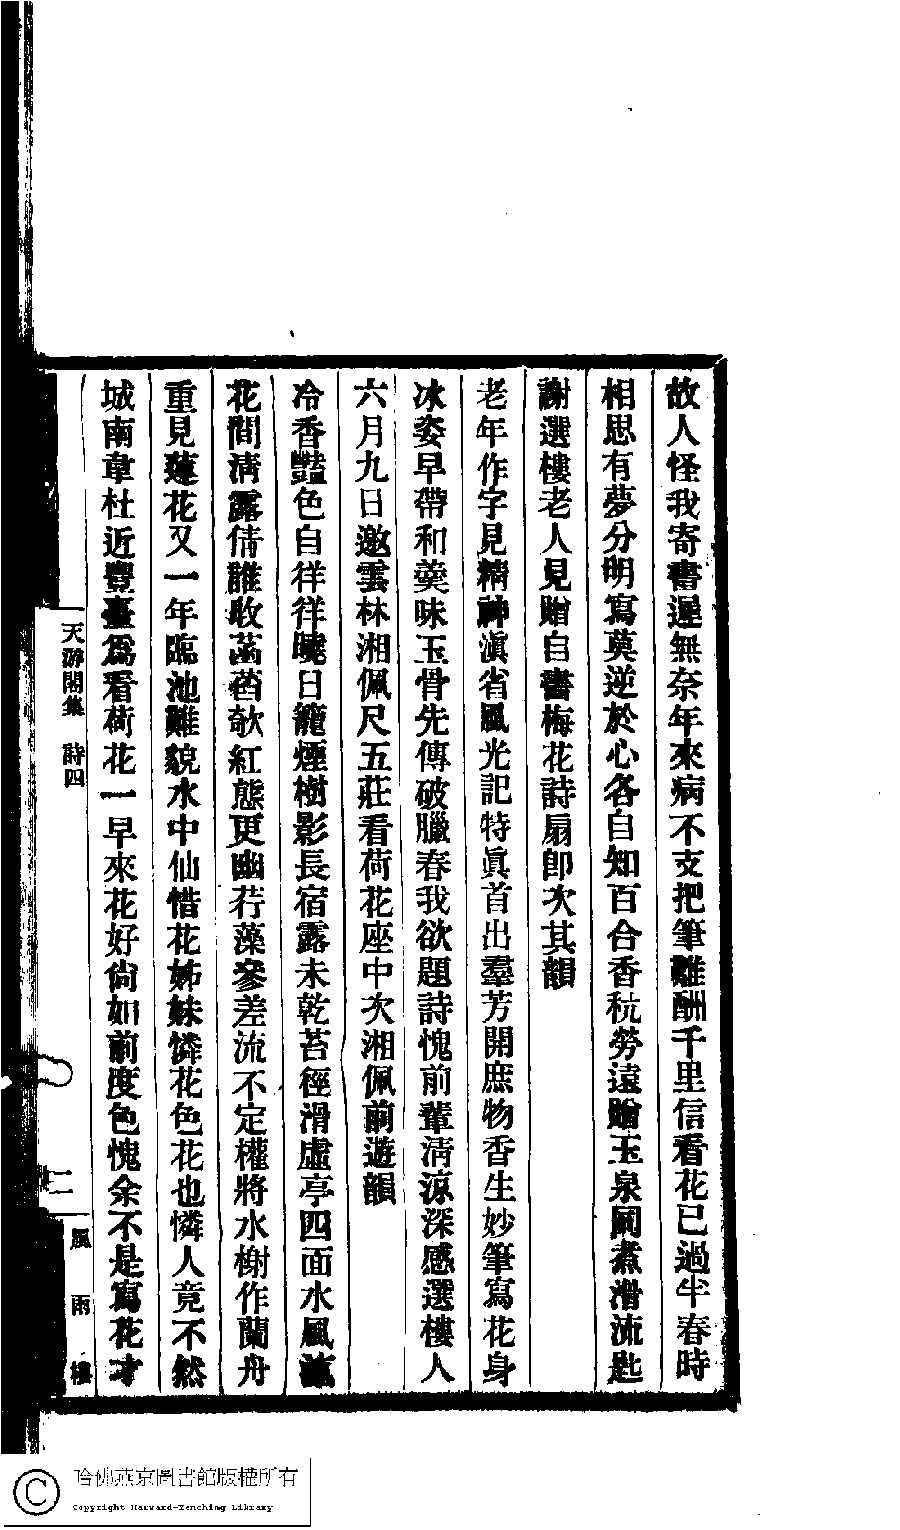 故人怪我寄書遲無奈年來病不支把筆難酬千里信看花已過半春時
相思有夢分明寫莫逆於心各自知百合香秔勞遠贈玉泉同煮滑流匙
謝選樓老人見贈自書梅花詩扇卽次其韻
老年作字見精神滇省風光記特眞首出羣芳開庶物香生妙筆寫花身
冰姿早帶和羹味玉骨先傳破臘春我欲題詩愧前輩清涼深感選樓人
六月九日邀雲林湘佩尺五莊看荷花座中次湘佩前遊韻
冷香豔色自徉徉曉日籠煙樹影長宿露未乾苔徑滑虛亭四面水風涼
花間清露倩誰收菡萏欹紅態更幽荇藻參差流不定權將水榭作蘭舟
重見蓮花又一年臨池難貌水中仙惜花姊妹憐花色花也憐人竟不然
城南韋杜近豐臺爲看荷花一早來花好尙如前度色愧余不是寫花才
天游閣集 詩四
二
風雨樓
哈佛燕京圖書館版權所有
Copyright Harvard-Yenching Library